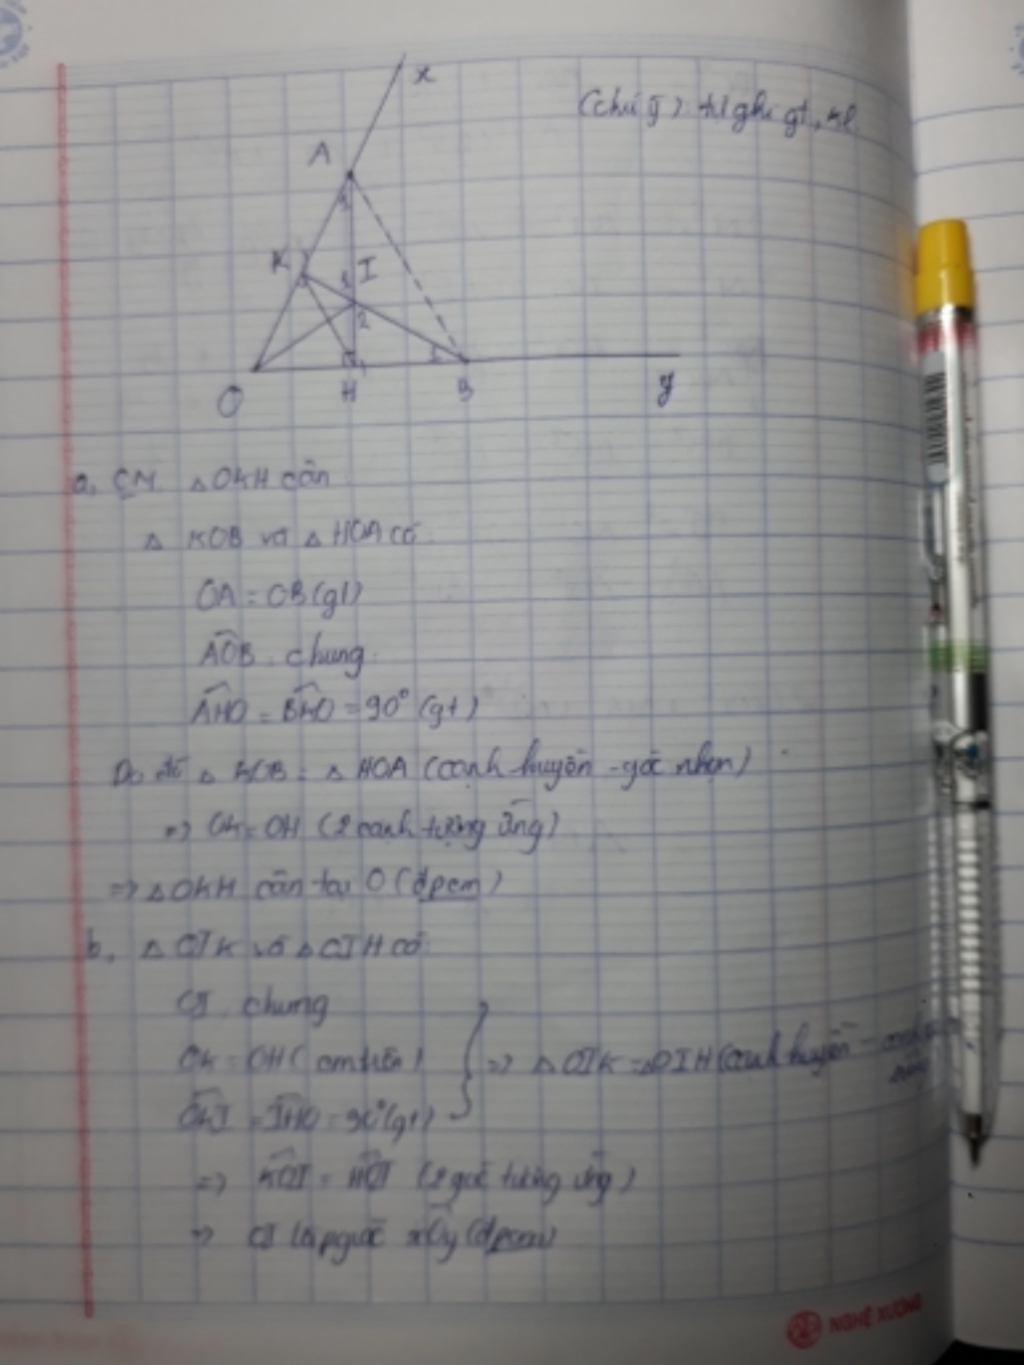 (chú ý): tự ghi gt, kl
x
A
K
I
2
O
H
B
y
a, CM △OKH cân
△ KOB và △ HOA có
OA = OB (gt)
AOB chung
AHO = BKO = 90° (gt)
Do đó △ KOB = △ HOA (cạnh huyền - góc nhọn)
=> OK = OH (2 cạnh tương ứng)
=> △OKH cân tại O (đpcm)
b, △ OIK và △ OIH có
OI chung
OK = OH (cm trên)
OKI = IHO = 90° (gt)
=> △ OIK = △OIH (cạnh huyền -
=> KOI = HOI (2 góc tương ứng)
=> OI là pgiác xOy (đpcm)
NGHỆ XƯƠNG